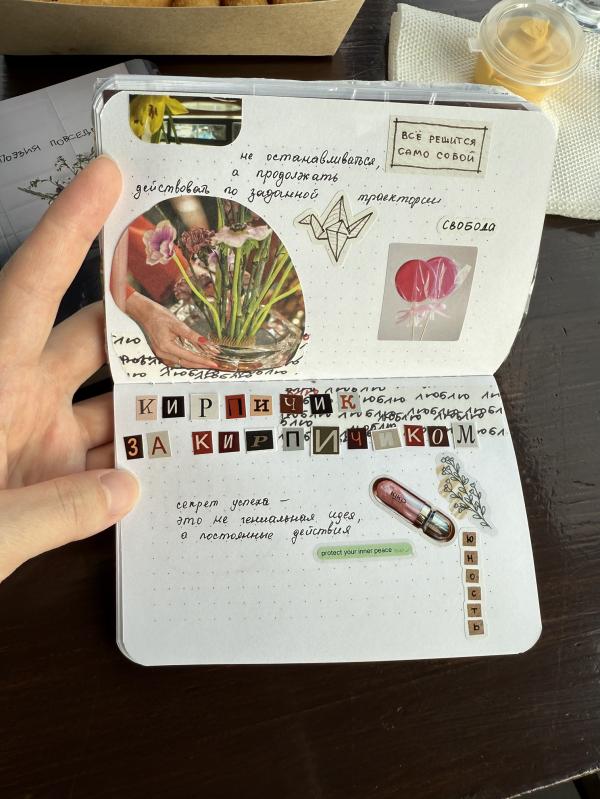 ПОЭЗИЯ ПОВСЕД
ВСЁ РЕШИТСЯ
САМО СОБОЙ
не останавливаться,
а продолжать
действовать по заданной траектории
СВОБОДА
люблю люблю люблю
КИРПИЧИК
ЗА КИРПИЧИКОМ
секрет успеха —
это не гениальная идея,
а постоянные действия
protect your inner peace
ЮНОСТЬ